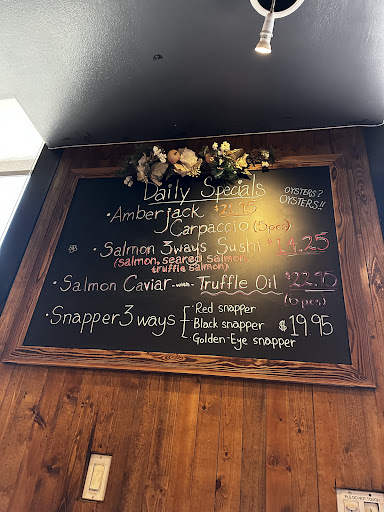 Daily Specials
OYSTERS?
OYSTERS!!
• Amberjack
Carpaccio (5pcs)
• Salmon 3ways Sushi $14.25
(salmon, seared salmon,
truffle salmon)
• Salmon Caviar -with- Truffle Oil $22.95
(6pcs)
• Snapper 3 ways
• Red snapper
• Black snapper
• Golden-Eye snapper
$19.95